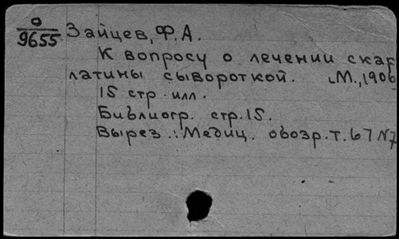 О
9655
Зайцев, Ф.А.
К вопросу о лечении скар
латины сывороткой. М., 1906
15 стр. илл.
Библиогр. стр. 15.
Вырез.: Медиц. обозр. т. 67 N7